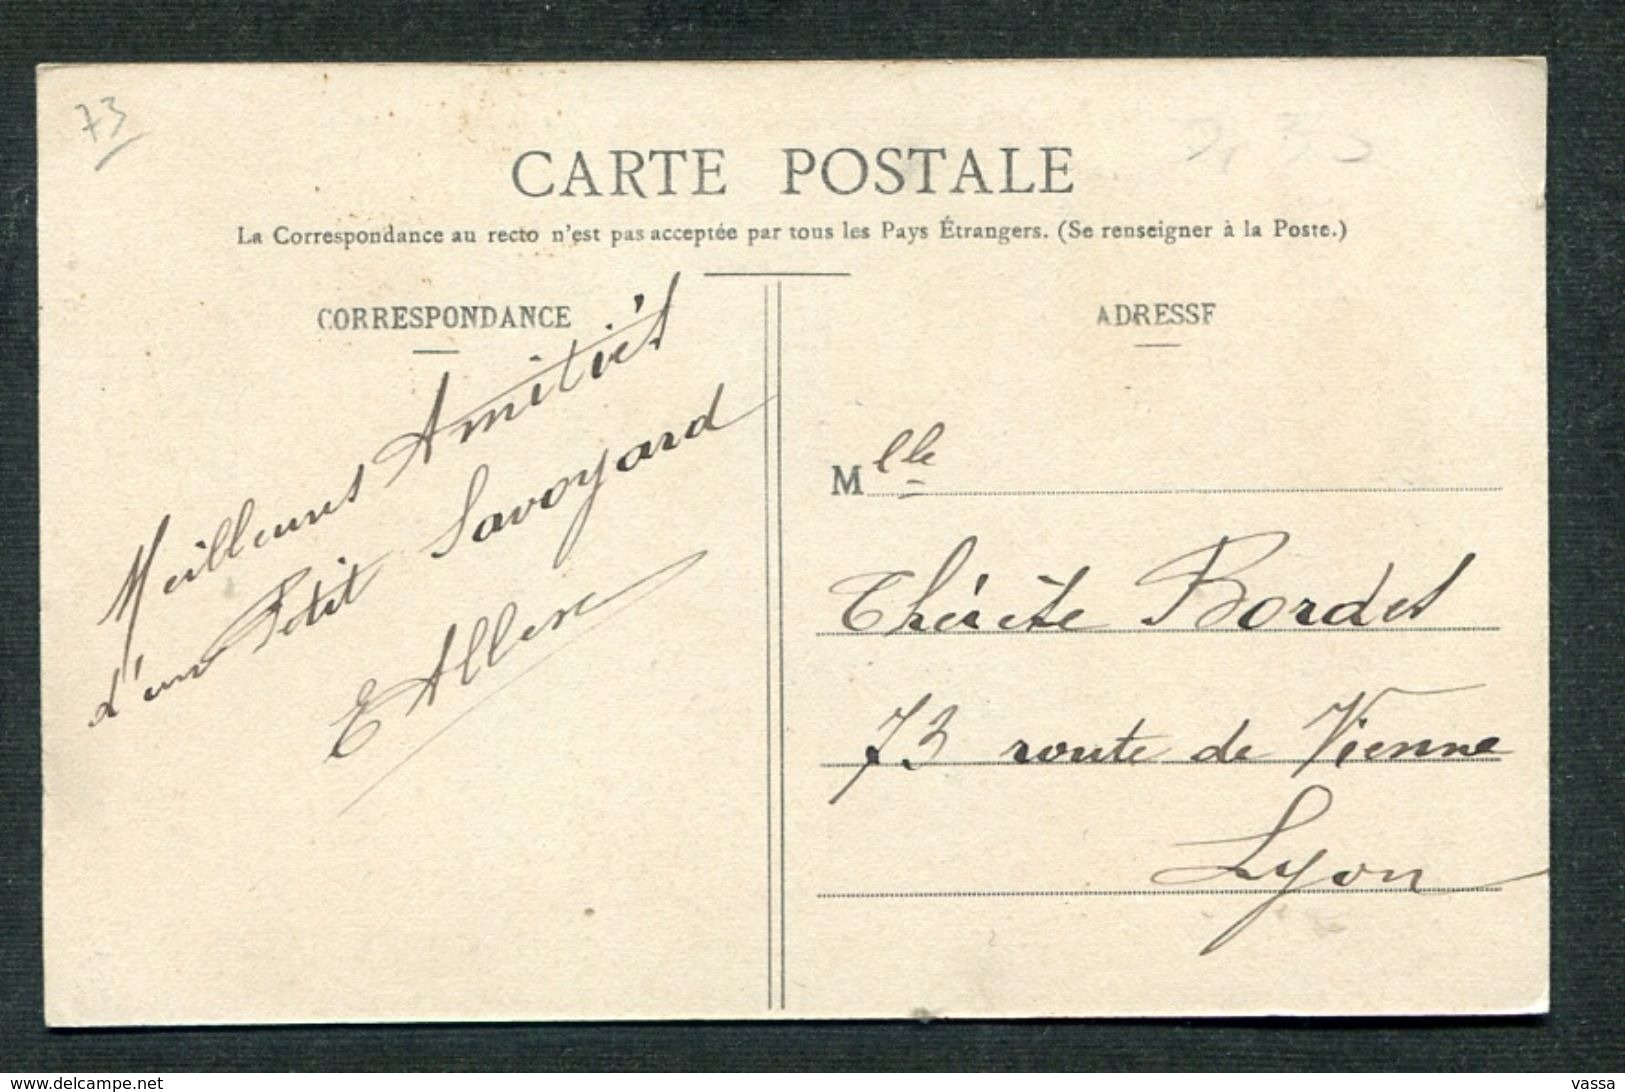 73
CARTE POSTALE
La Correspondance au recto n'est pas acceptée par tous les Pays Étrangers. (Se renseigner à la Poste.)
CORRESPONDANCE
Meilleures Amitiés
d'un Petit Savoyard
ADRESSE
Mlle
Thérèse Bordet
73 route de Vienne
Lyon
www.delcampe.net
vassa